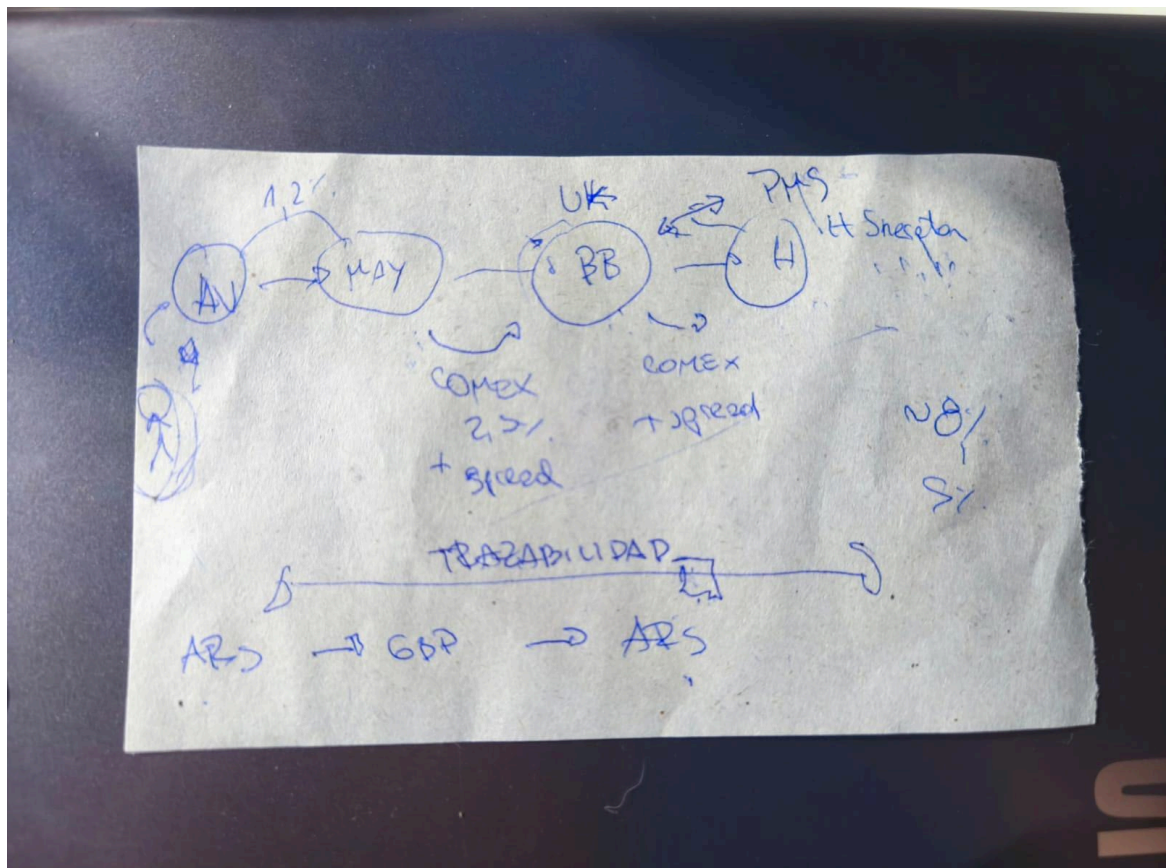 1,2%
UK
PMS
AV
MAY
BB
H
H
COMEX
+ spread
COMEX
+ spread
~8%
5%
TRAZABILIDAD
ARS → GBP → ARS